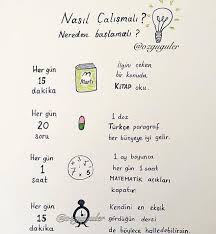 Nasıl Çalışmalı?
Nereden başlamalı?
@ozguguler
Her gün
15
dakika
Martı
İlgini çeken
bir konuda
KİTAP oku.
Her gün
20
soru
1 doz
Türkçe paragraf
her bünyeye iyi gelir.
Her gün
1
saat
1 ay boyunca
her gün 1 saat
MATEMATİK açıkları
kapatır
Her gün
15
dakika
@ozguguler
Kendini en eksik
gördüğün dersi
de böylece halledebilirsin.